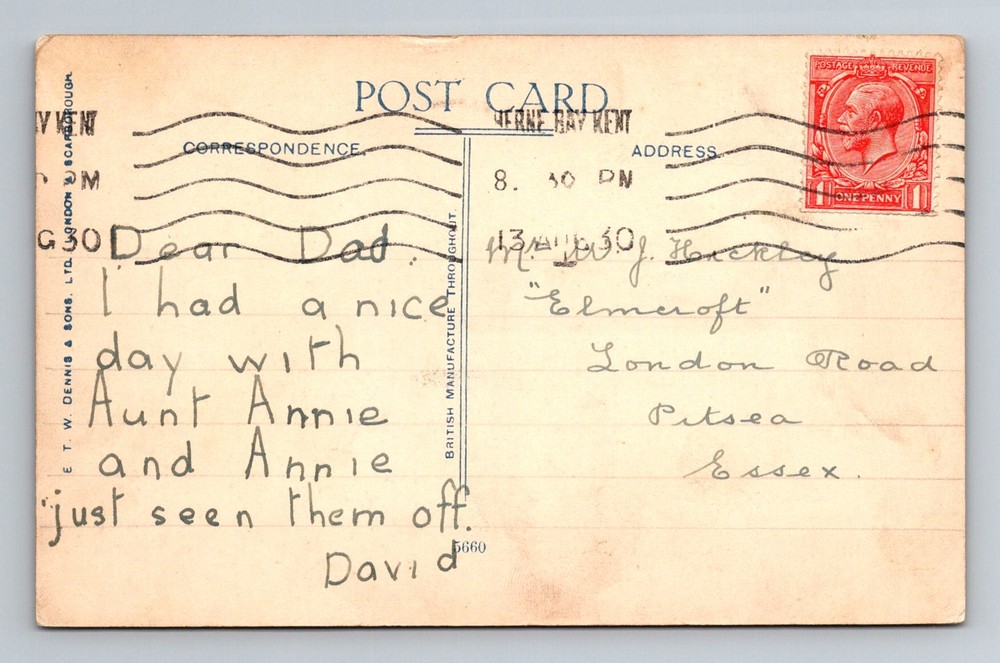 POST CARD
CORRESPONDENCE.
ADDRESS.
POSTAGE REVENUE
1 ONE PENNY 1
AY KENT
PM
G 30
HERNE BAY KENT
8. 30 PM
13 AUG 30
Dear Dad.
I had a nice
day with
Aunt Annie
and Annie
just seen them off.
David
Mr W J. Hockley
"Elmcroft"
London Road
Pitsea
Essex.
E. T. W. DENNIS & SONS. LTD. LONDON & SCARBOROUGH.
BRITISH MANUFACTURE THROUGHOUT.
5660